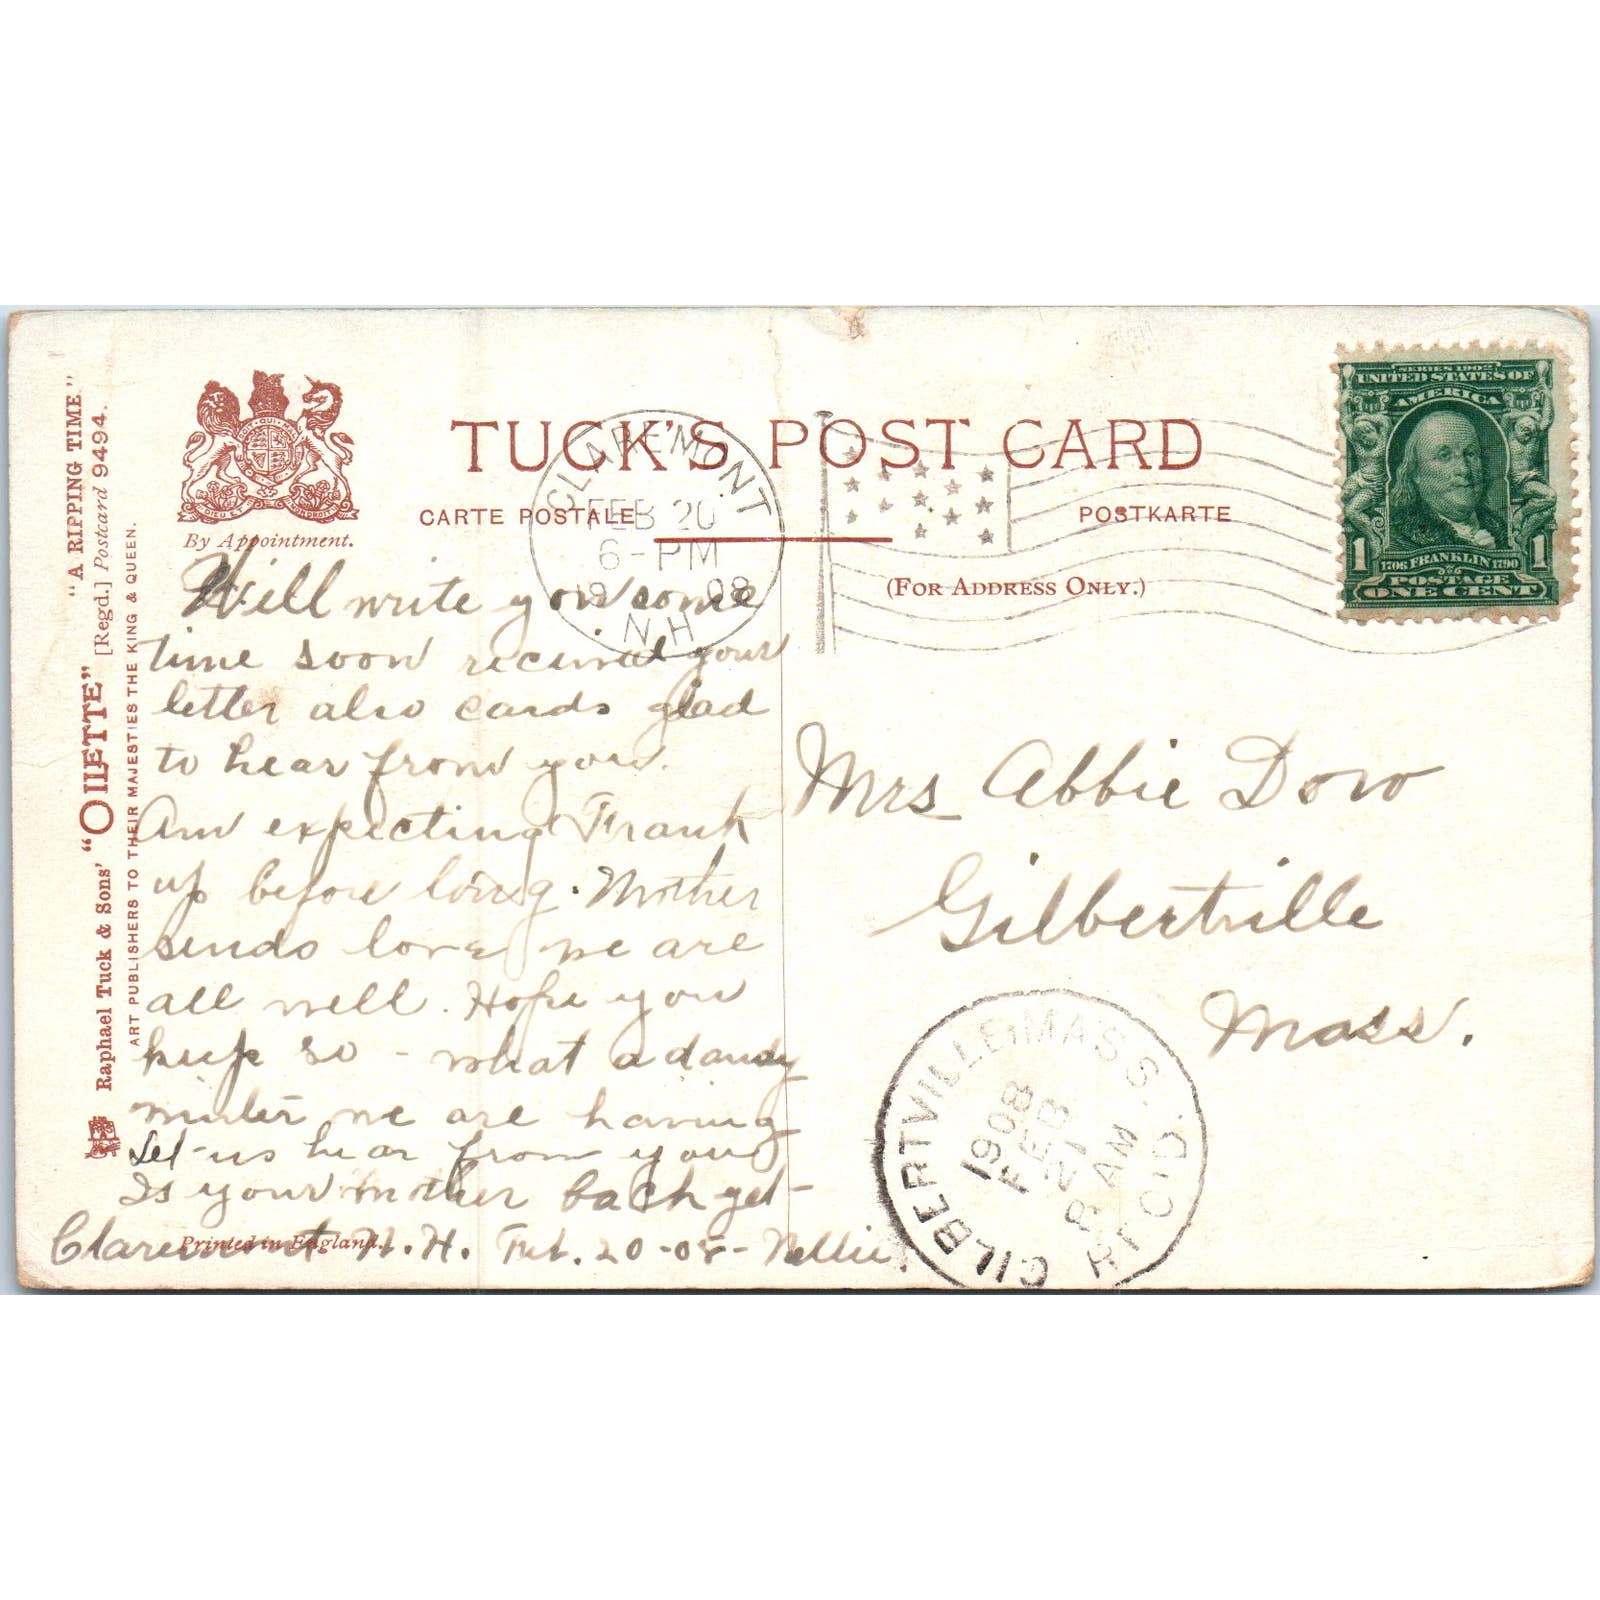 "A RIPPING TIME."
Raphael Tuck & Sons' "OILETTE" [Regd.] Postcard 9494.
ART PUBLISHERS TO THEIR MAJESTIES THE KING & QUEEN.
By Appointment.
TUCK'S POST CARD
CARTE POSTALE
POSTKARTE
(FOR ADDRESS ONLY.)
CLAREMONT
FEB 20
6-PM
1908
N.H.
SERIES 1902
UNITED STATES OF
AMERICA
1 1706 FRANKLIN 1790 1
POSTAGE
ONE CENT
Will write you some
time soon received your
letter also cards glad
to hear from you.
Am expecting Frank
up before long. Mother
sends love we are
all well. Hope you
keep so - what a dandy
winter we are having
Let us hear from you
Is your mother back yet -
Claremont N. H. Feb. 20-08- Nellie.
Printed in England.
Mrs Abbie Dow
Gilbertville
Mass.
GILBERTVILLE, MASS.
1908
FEB
21
8 AM
REC'D.